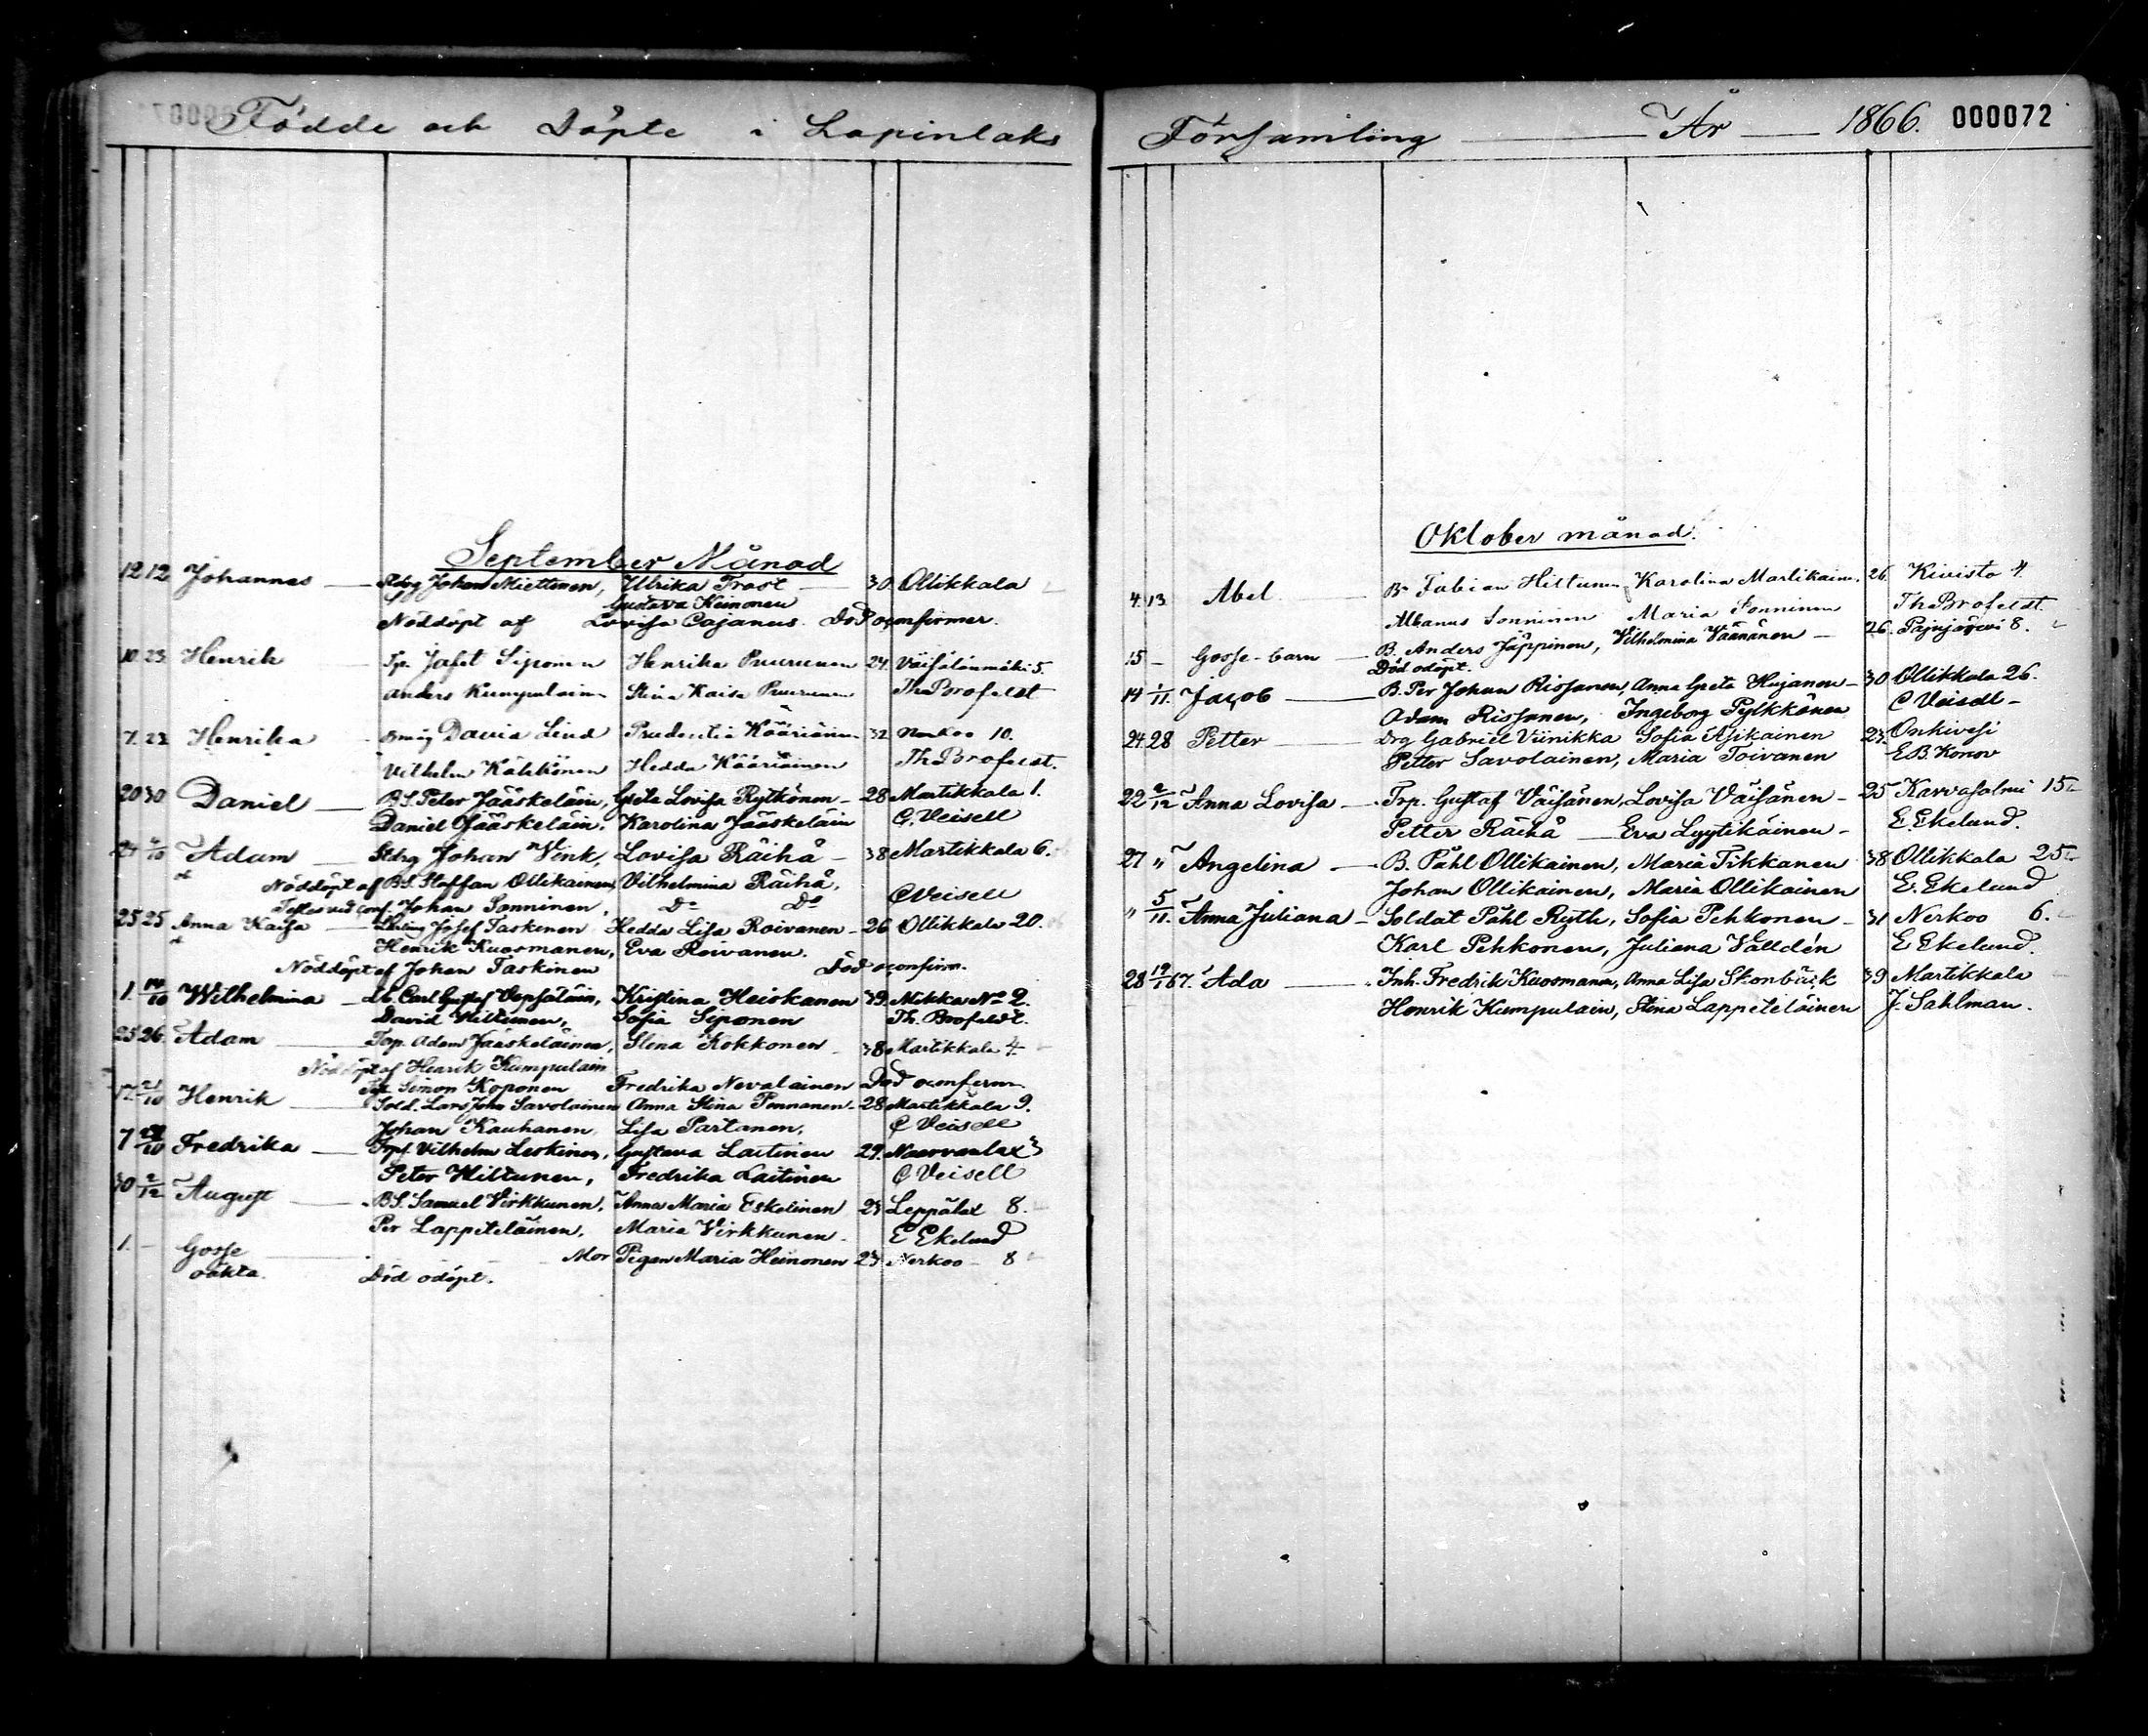 Födde och Döpte i Lapinlaks
September Månad
12 12 Johannes — Johan Miettinen, Ulrika Trast — 30 Ollikkala
Gustava Keinonen
Nöddöpt af Lovisa Cajanus. Död oconfirmer.
10 23 Henrik — Tp. Jafet Siponen Henrika Puurunen 24. Väisälänmäki 5.
Anders Kumpulain Stina Kaisa Puurunen Th Brofeldt
7. 23 Henrika David Lind Prudentia Kääriäinen 32 Nerkoo 10.
Vilhelm Kähkönen Hedda Kääriäinen Th. Brofeldt.
20 30 Daniel — BS. Peter Jääskeläin, Greta Lovisa Rytkönen — 28 Martikkala 1.
Daniel Jääskeläin. Karolina Jääskeläin C. Veisell
24 4/10 Adam — Johan Vink, Lovisa Räihä — 38 Martikkala 6.
Nöddöpt af BS. Staffan Ollikainen, Vilhelmina Räihä,
Testes vid conf. Johan Sonninen, Do Do C Veisell
25 25 Anna Kaisa — Josef Taskinen Hedda Lisa Roivanen — 26 Ollikkala 20.
Henrik Kuosmanen, Eva Roivanen.
Nöddöpt af Johan Taskinen Död oconfirm.
1. 14/10 Wilhelmina — Carl Gustaf Vepsäläin, Kristina Heiskanen 39. Mökka No 2.
David Hiltunen, Sofia Siponen Th. Brofeldt.
25 26. Adam — Top. Adam Jääskeläinen, Stina Kokkonen 38 Martikkala 4.
Nöddöpt af Henrik Kumpulain
Simon Koponen Fredrika Nevalainen Död oconferm.
17. 21/10 Henrik — Sold. Lars Joh. Savolainen Anna Stina Pennanen — 28 Martikkala 9.
Johan Kauhanen, Lisa Partanen, C Veisell
7 /10 Fredrika — Vilhelm Leskinen, Gustava Laitinen 29. Naarvanlax 3
Peter Hiltunen, Fredrika Laitinen C Veisell
30 2/12 August — BS. Samuel Virkkunen, Anna Maria Eskelinen 23 Leppälax 8.
Per Lappeteläinen, Maria Virkkunen — E Ekelund
1. — Gosse — Mor Pigan Maria Heinonen 23 Nerkoo — 8
oäkta. Död odöpt.
Församling — År — 1866. 000072
Oktober månad.
4. 13 Abel — B. Fabian Hiltunen, Karolina Martikain. 26. Kivisto 4.
Albanus Sonninen Maria Sonninen Th Brofeldt.
15 — Gosse-barn — B. Anders Jäppinen, Vilhelmina Väänänen — 26. Pajujärvi 8.
Död odöpt.
14 1/11. Jacob — B. Per Johan Rissanen, Anna Greta Hujanen — 30 Ollikkala 26.
Adam Rissanen, Ingeborg Pylkkönen C Veisell —
24 28 Petter — Drg Gabriel Viinikka Sofia Asikainen 23. Onkivesi
Petter Savolainen, Maria Toivanen E B. Konov
22 2/12 Anna Lovisa — Trp. Gustaf Väisänen, Lovisa Väisänen — 25 Karvasalmi 15
Petter Räihä — Eva Lyytikäinen — E. Ekelund.
27 " Angelina — B. Påhl Ollikainen, Maria Tikkanen 38 Ollikkala 25
Johan Ollikainen, Maria Ollikainen E. Ekelund
" 5/11. Anna Juliana — Soldat Påhl Ryth, Sofia Pehkonen — 31 Nerkoo 6.
Karl Pehkonen, Juliana Valldén E Ekelund.
28 19/1 67. Ada — Inh. Fredrik Kuosmanen, Anna Lisa Stenbäck 39 Martikkala
Henrik Kumpulain, Stina Lappeteläinen J. Sahlman.